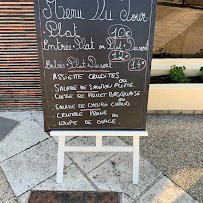 Menu Du Jour
Plat 10€
Entrée-Plat ou Plat Dessert
12€
Entrée-Plat-Dessert 15€
- ASSIETTE CRUDITES
ou
- SALADE DE SAUMON FUMÉ
- CUISSE DE POULET BASQUAISE
ou
- SALADE DE CHEVRE CHAUD
-
ou
- COUPE DE GLACE